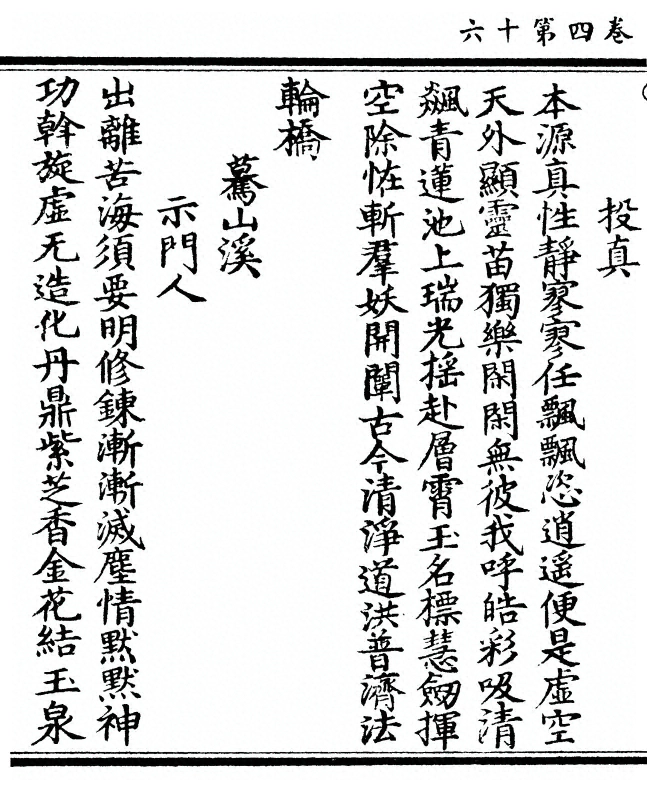 卷四第十六
投真
本源真性靜寥寥任飄飄恣逍遥便是虛空
天外顯靈苗獨樂閑閑無彼我呼皓彩吸清
飆青蓮池上瑞光摇赴層霄玉名標慧劒揮
空除恠斬羣妖開闡古今清淨道洪普濟法
輪橋
驀山溪
示門人
出離苦海須要明修鍊漸漸滅塵情默默神
功斡旋虛无造化丹鼎紫芝香金花結玉泉